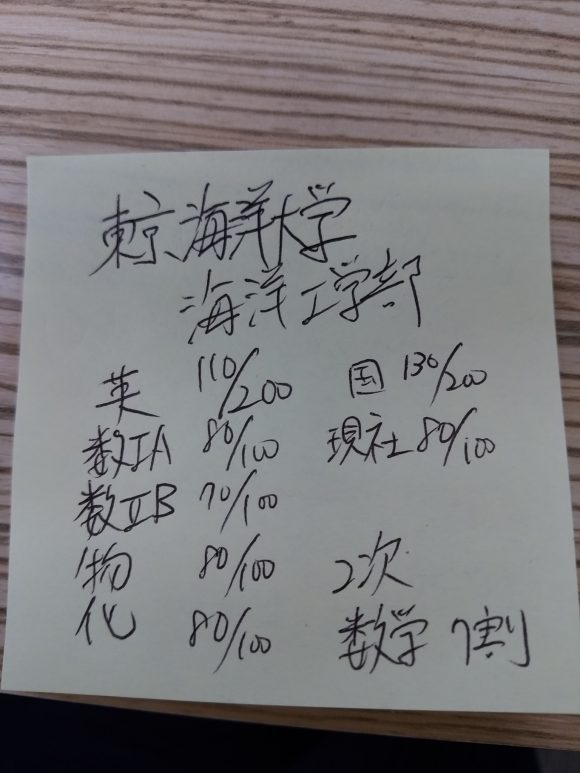 東京海洋大学
海洋工学部
英 110/200 国 130/200
数IA 80/100 現社 80/100
数ⅡB 70/100
物 80/100 2次
化 80/100 数学 7割